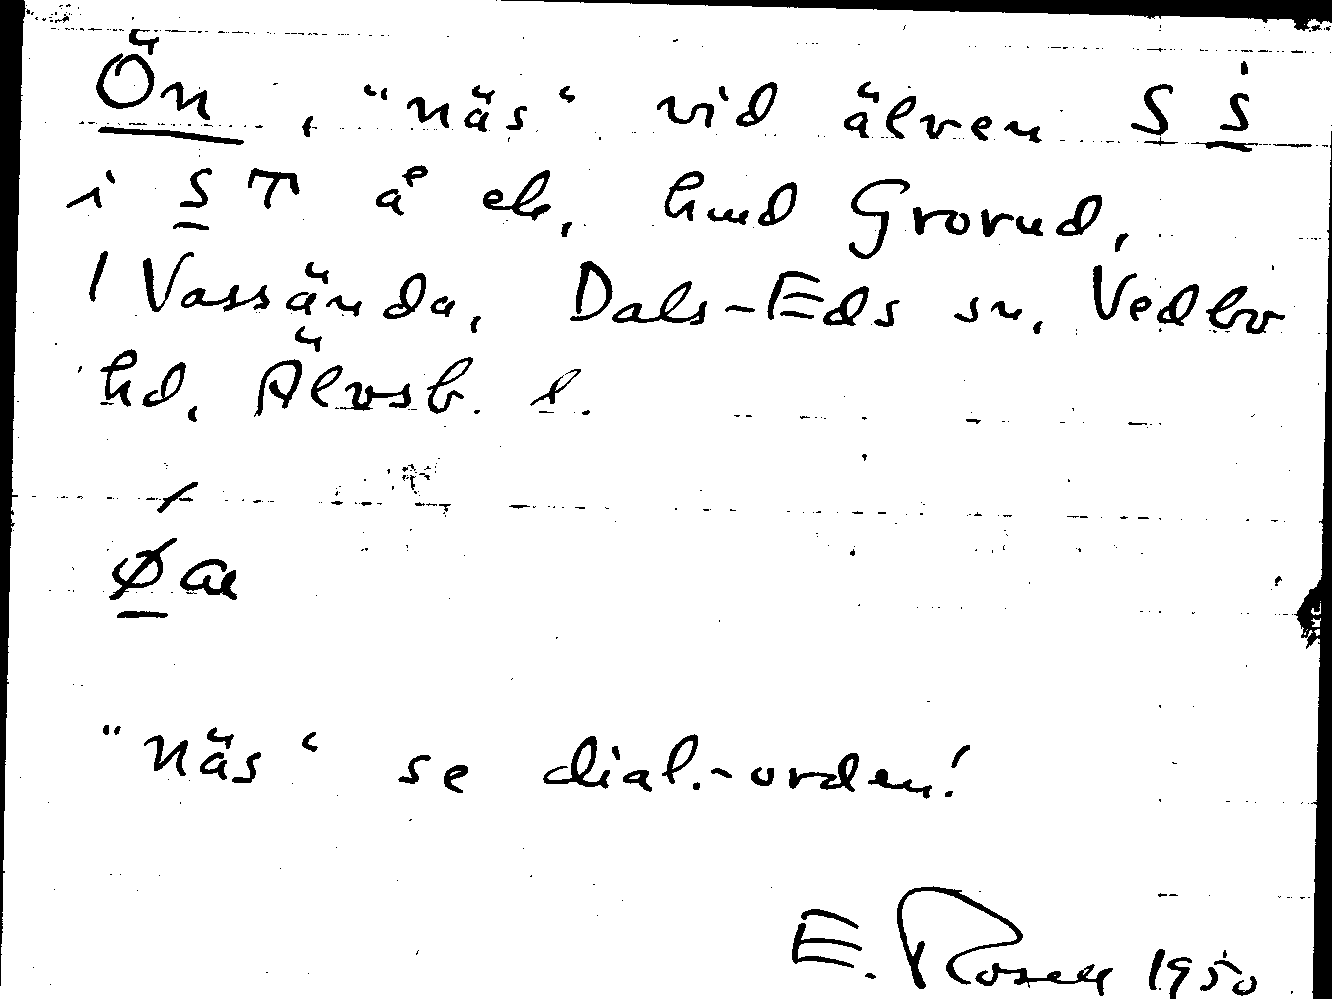 Ön, "näs" vid älven S s
i S T å ek. hmd Grorud,
1 Vassända, Dals-Eds sn, Vedbo
hd, Älvsb. l.
"näs" se dial.-orden!
E. Rosell 1950